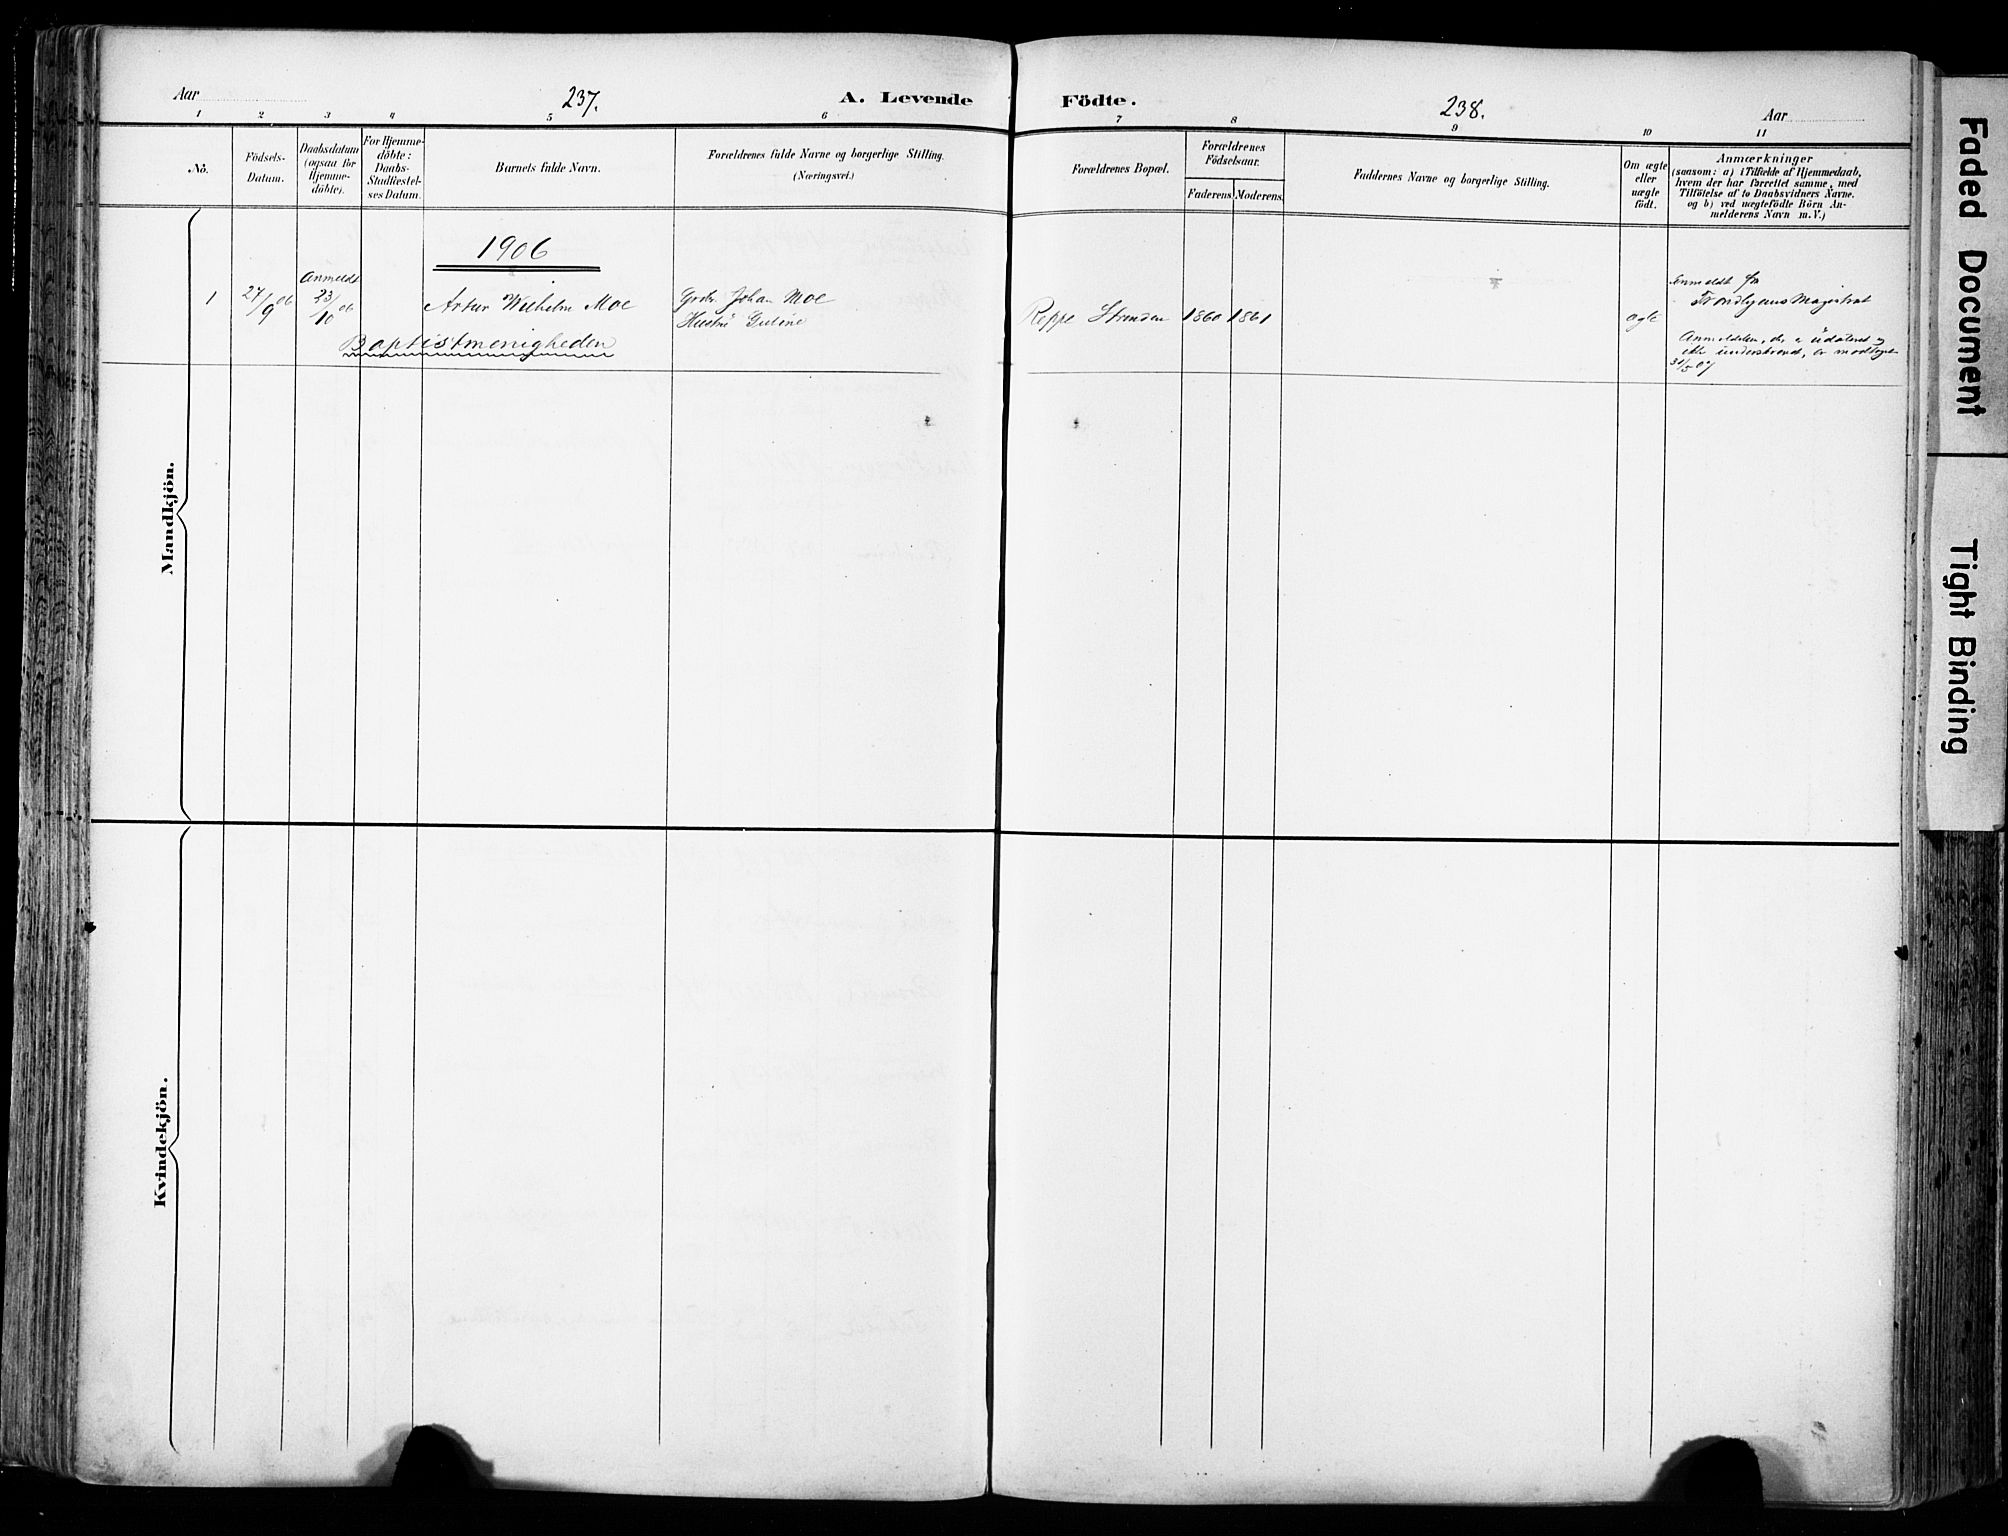 Aar
237.
A. Levende
Födte.
238.
Aar
1 2 3 4 5 6 7 8 9 10 11
No.
Födsels-
Datum.
Daabsdatum
(ogsaa for
Hjemme-
döbte).
For Hjemme-
döbte:
Daabs-
Stadfæstel-
ses Datum.
Barnets fulde Navn.
Forældrenes fulde Navne og borgerlige Stilling.
(Næringsvei.)
Forældrenes Bopæl.
Forældrenes
Födselsaar.
Faderens.
Moderens.
Faddernes Navne og borgerlige Stilling.
Om ægte
eller
uægte
födt.
Anmærkninger
(saasom: a) i Tilfælde af Hjemmedaab,
hvem der har forrettet samme, med
Tilföielse af to Daabsvidners Navne.
og b) ved uægtefödte Börn An-
melderens Navn m. V.)
Mandkjön.
1906
1
27/9 06
Anmeldt
23/10 06
Artur Wilhelm Moe
Baptistmenigheden
Grdbr. Johan Moe
Hustru Guline
Reppe Stranden
1860
1861
ægte
Anmeldt fra
Trondhjems Magistrat
Anmeldelsen, der er udateret og
ikke underskrevet, er modtaget
31/5 07
Kvindekjön.
Faded Document
Tight Binding